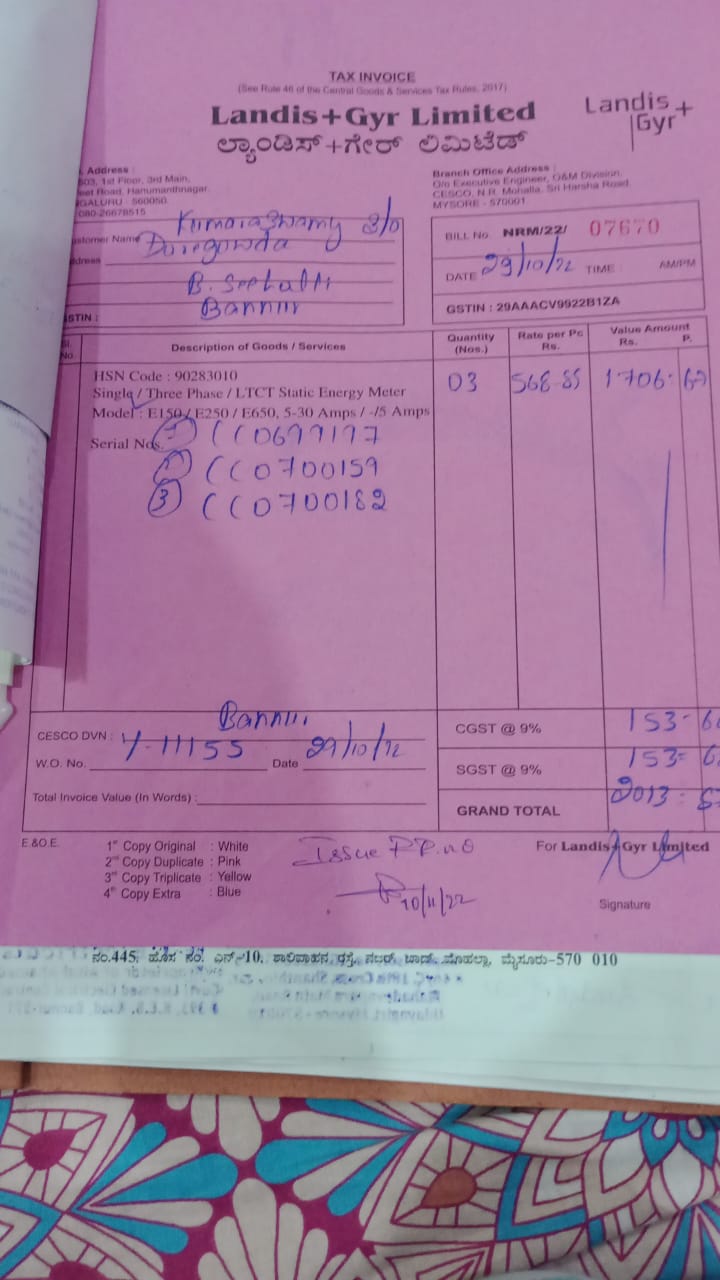 TAX INVOICE
(See Rule 46 of the Central Goods & Services Tax Rules, 2017)
Landis+Gyr Limited
ಲ್ಯಾಂಡಿಸ್+ಗೇರ್ ಲಿಮಿಟೆಡ್
Landis+
Gyr
Address :
1st Floor, 3rd Main,
Road, Hanumanthnagar,
560050.
080-26678515
Branch Office Address :
O/o Executive Engineer, O&M Division,
CESCO, N.R. Mohalla, Sri Harsha Road,
MYSORE - 570001
Customer Name Kumaraswamy S/o
Doregowda
B. Seehalli
Bannur
BILL No. NRM/22/ 07670
DATE 29/10/22 TIME : AM/PM
GSTIN : 29AAACV9922B1ZA
Sl. No. Description of Goods / Services Quantity (Nos.) Rate per Pc Rs. Value Amount Rs. P.
HSN Code : 90283010
Single / Three Phase / LTCT Static Energy Meter 03 568-85 1706-
Model : E150 / E250 / E650, 5-30 Amps / -/5 Amps
Serial Nos. CC0699197
CC0700159
3 CC0700182
CESCO DVN : Bannur
W.O. No. Y-11155 Date 29/10/22
Total Invoice Value (In Words) :
CGST @ 9% 153-
SGST @ 9% 153-
GRAND TOTAL 2013-
E.&O.E.
1st Copy Original : White
2nd Copy Duplicate : Pink
3rd Copy Triplicate : Yellow
4th Copy Extra : Blue
Issue
10/11/22
For Landis+Gyr Limited
Signature
ನಂ.445, ಹೊಸ ನಂ. ಎನ್-10, ಶಾಲಿವಾಹನ ರಸ್ತೆ, ನಜರ್‌ಬಾದ್ ಮೊಹಲ್ಲಾ, ಮೈಸೂರು-570 010